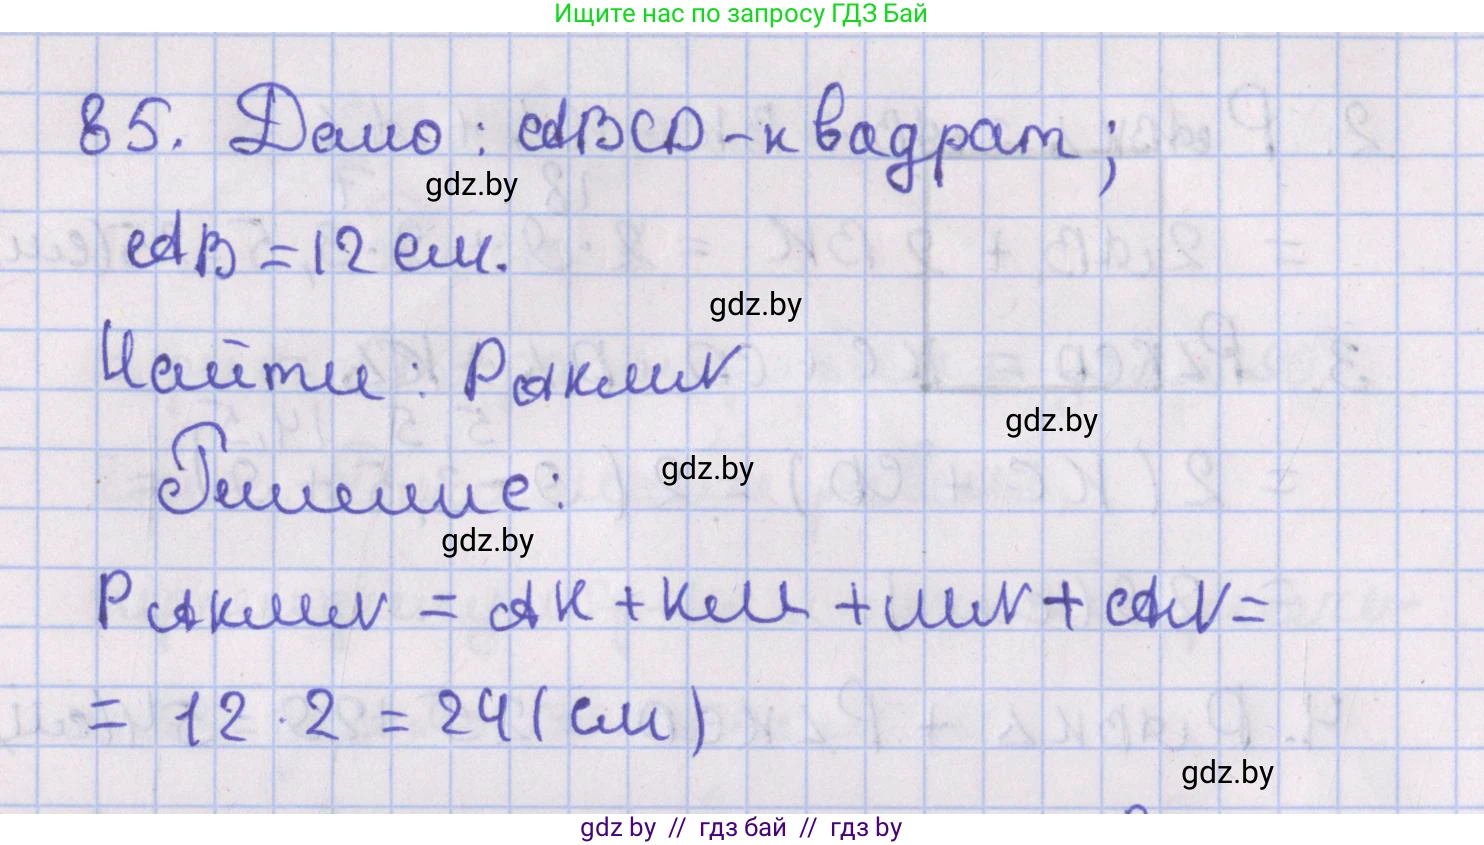 Ищите нас по запросу ГДЗ Бай
85. Дано: ABCD - квадрат;
gdz.by
AB = 12 см.
gdz.by
Найти: PAKMN
gdz.by
gdz.by
Решение:
gdz.by
PAKMN = AK + KM + MN + AN =
= 12 · 2 = 24 (см)
gdz.by
gdz by // гдз бай // гдз by